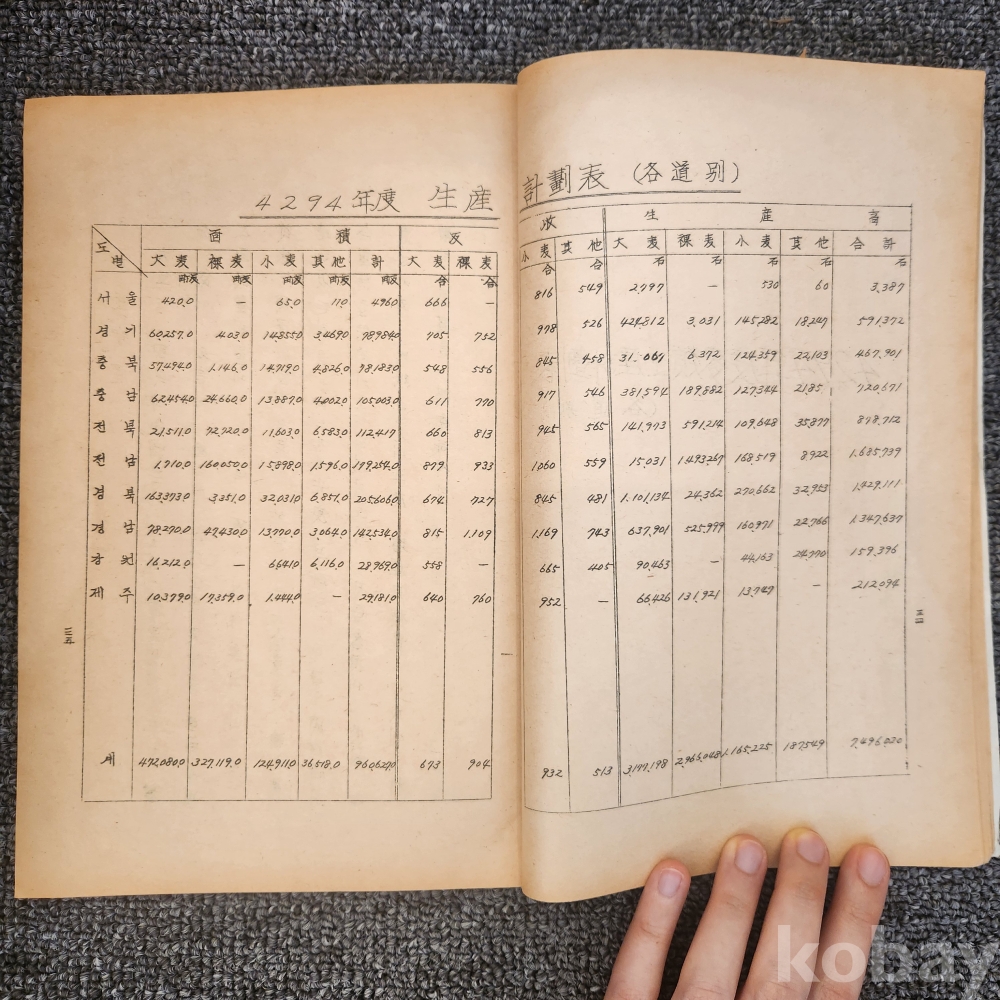 4294年度 生産計劃表 (各道别)
도별 面積 反收 生産高
大麦 裸麦 小麦 其他 計 大麦 裸麦 小麦 其他 大麦 裸麦 小麦 其他 合計
町反 町反 町反 町反 町反 合 合 合 合 石 石 石 石 石
서울 420.0 — 65.0 11.0 496.0 666 — 816 549 2,797 — 530 60 3,387
경기 60,257.0 403.0 14,855.0 3,469.0 78,984.0 705 752 978 526 424,812 3,031 145,282 18,247 591,372
충북 57,494.0 1,146.0 14,719.0 4,826.0 78,183.0 548 556 845 458 6,372 124,359 22,103 467,901
충남 62,454.0 24,660.0 13,887.0 4,002.0 105,003.0 611 770 917 546 381,594 189,882 127,344 2185 720,671
전북 21,511.0 72,720.0 11,603.0 6,583.0 112,417 660 813 945 565 141,973 591,214 109,648 35,877 878,712
전남 1,710.0 160,050.0 15,898.0 1,596.0 179,254.0 879 933 1,060 559 15,031 1,493,267 168,519 8,922 1,685,739
경북 163,373.0 3,351.0 32,031.0 6,851.0 205,606.0 674 727 845 481 1,101,134 24,362 270,662 32,953 1,429,111
경남 78,270.0 47,430.0 13,770.0 3,064.0 142,534.0 815 1,109 1,169 743 637,901 525,999 160,971 22,766 1,347,637
강원 16,212.0 — 6,641.0 6,116.0 28,969.0 558 — 665 405 90,463 — 44,163 24,770 159,396
제주 10,379.0 17,359.0 1,444.0 — 29,181.0 640 760 952 — 66,426 131,921 13,747 — 212,094
계 472,080.0 327,119.0 124,911.0 36,518.0 960,627.0 673 904 932 513 3,177,198 2,966,048 1,165,225 187,549 7,496,020
三五
三四
kobay